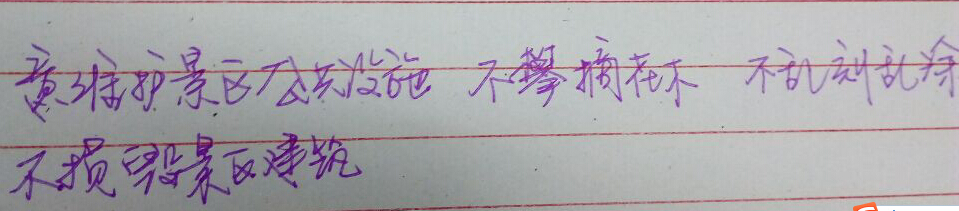 意维护景区公共设施 不攀摘花木 不乱刻乱涂
不损毁景区建筑